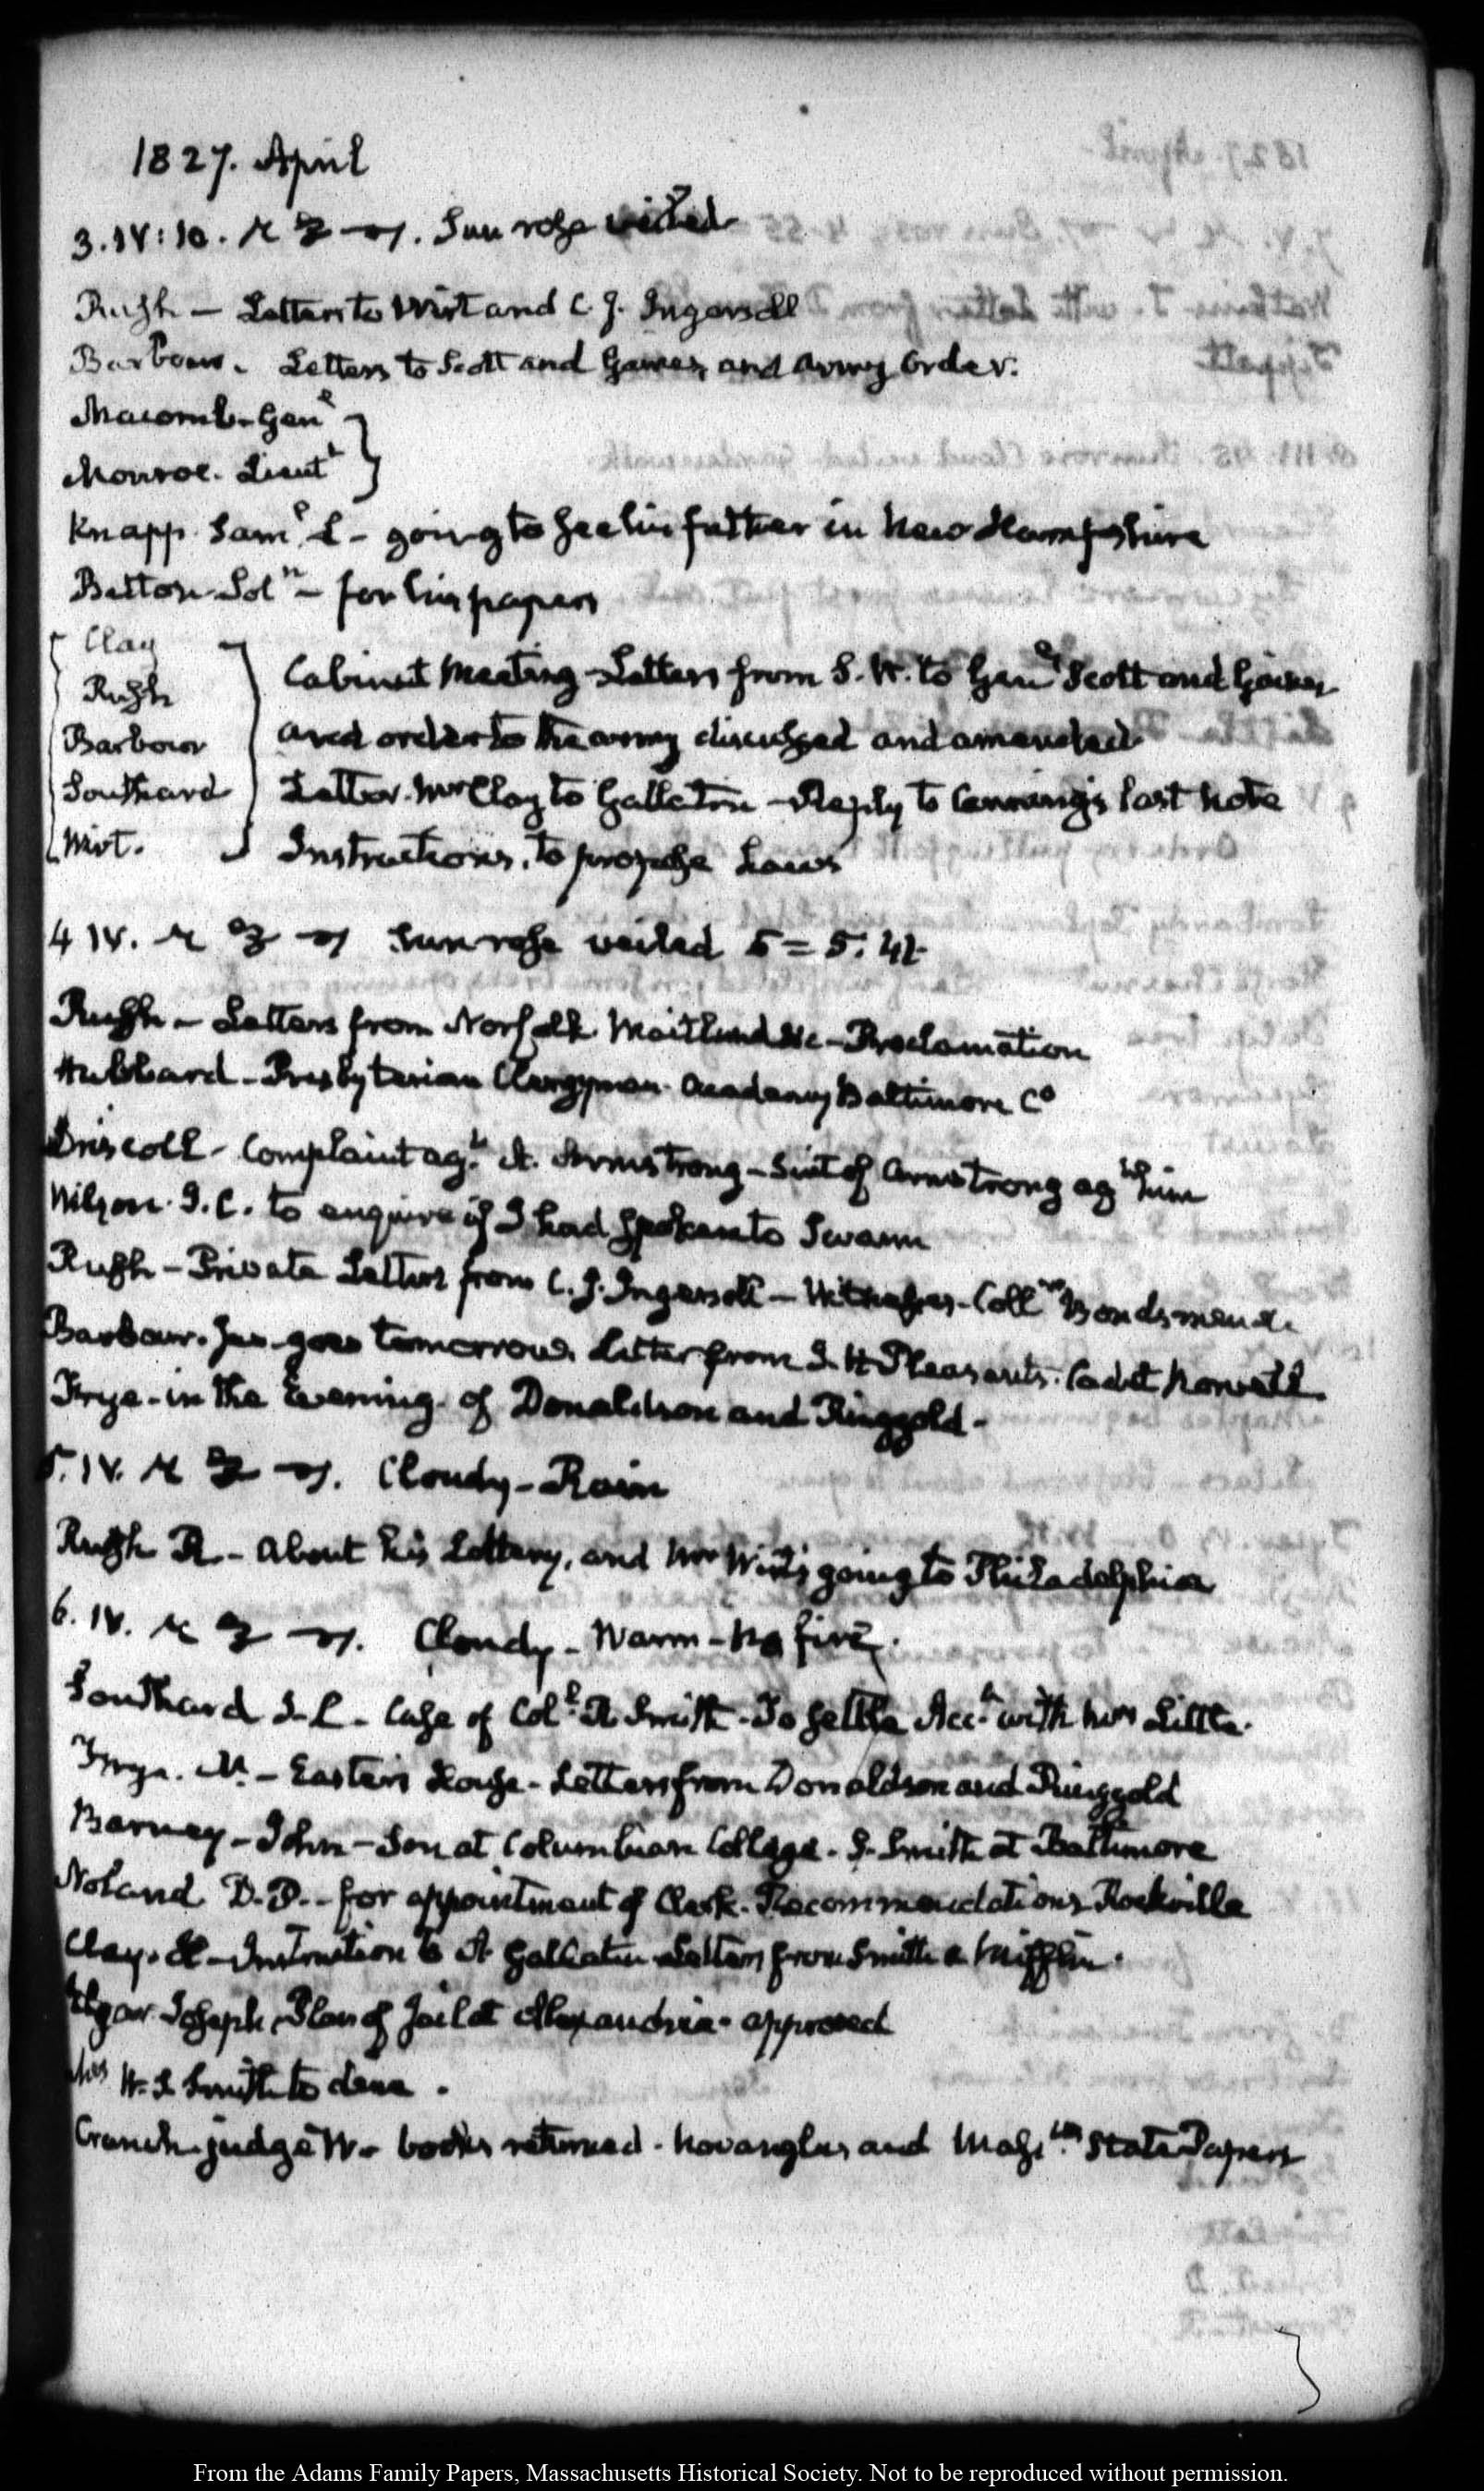 1827. April
3. IV: 10. Sun rose veiled
Rush — Letters to Wirt and C. J. Ingersoll
Barbour. Letters to Scott and Gaines, and Army order.
Macomb. Genl
Monroe. Lieutt
Knapp. Saml L — going to see his father in New Hampshire
Betton Soln — for his papers
Clay
Rush
Barbour
Southard
Wirt.
Cabinet Meeting — Letters from S. W. to Genls Scott and Gaines
and order to the army discussed and amended
Letter. Mr Clay to Gallatin — Reply to Canning's last Note
Instructions, to propose Laws
4 IV. Sun rose veiled 5 = 5. 42
Rush — Letters from Norfolk Maitland &c — Proclamation
Hubbard — Presbyterian Clergyman. Academy Baltimore Co
Driscoll — Complaint agt A. Armstrong — Suit of Armstrong agt him
Wilson. I. C. to enquire if I had spoken to Swann
Rush — Private Letters from C. J. Ingersoll — Witnesses — Bondsmen &c
Barbour. Jas goes tomorrow. Letter from J. H Pleasants. Cadet Norvell
Frye — in the Evening of Donaldson and Ringgold —
5. IV. Cloudy — Rain
Rush R — About his Lottery, and Mr Wirt's going to Philadelphia
6. IV. Cloudy — Warm — No fire.
Southard S. L — Case of Coll R Smith. To settle Acct with Mrs Little.
Frye. N. — Eastern House — Letters from Donaldson and Ringgold
Barney — John — Son at Columbian College. S. Smith at Baltimore
Noland D. D. — for appointment of Clerk. Recommendations Rockville
Clay. H — Instruction to A Gallatin Letters from Smith & Mifflin.
Elgar Joseph, Plan of Jail at Alexandria. approved
Mrs W. S Smith to dine.
Cranch judge W — books returned. Novanglus and Massts State Papers
From the Adams Family Papers, Massachusetts Historical Society. Not to be reproduced without permission.